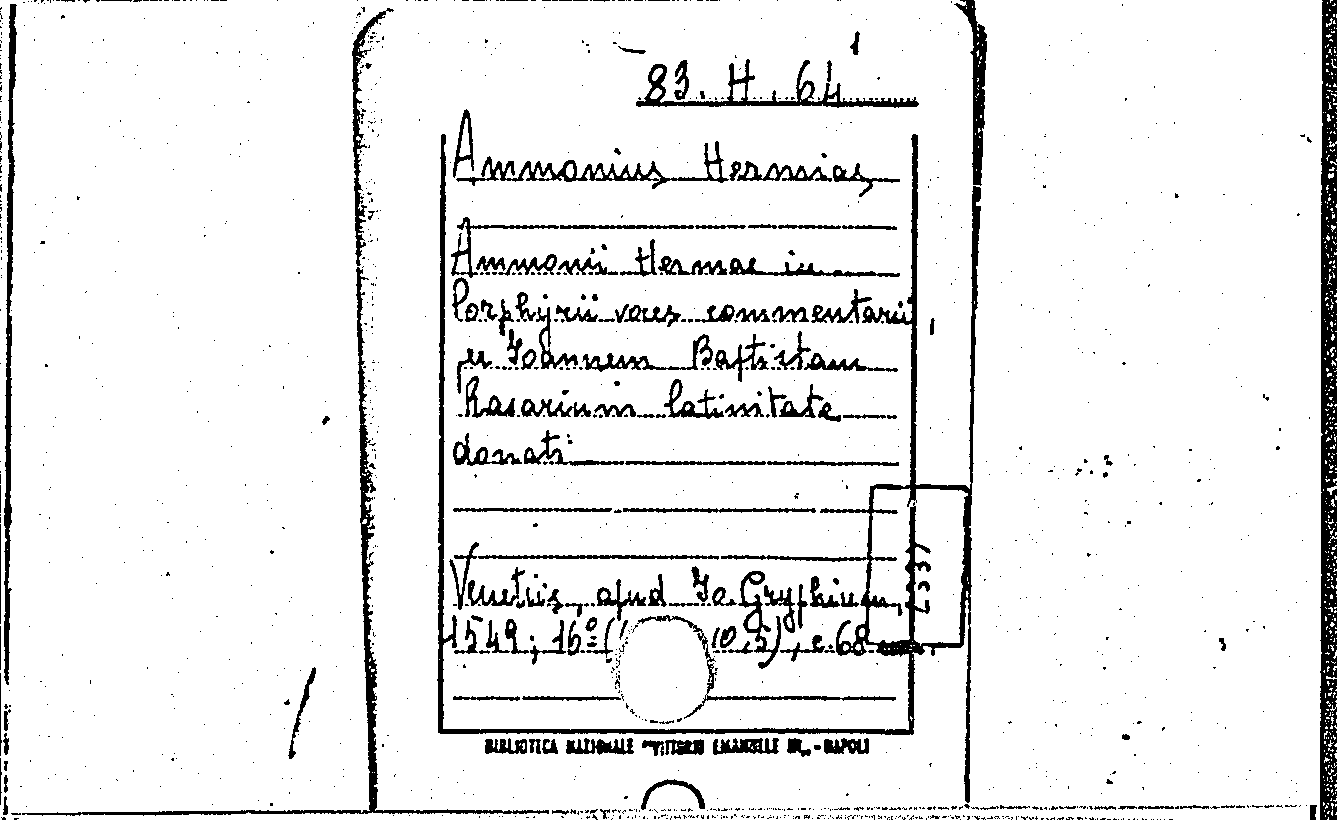 83. H. 64
1
Ammonius Hermias,
Ammonii Hermae in
Porphyrii voces commentarii,
per Joannem Baptistam
Rasarium latinitate
donati
Venetiis, apud Jo. Gryphium,
1549; 16º (10,5), c. 68
BIBLIOTECA NAZIONALE "VITTORIO EMANUELE III„ - NAPOLI